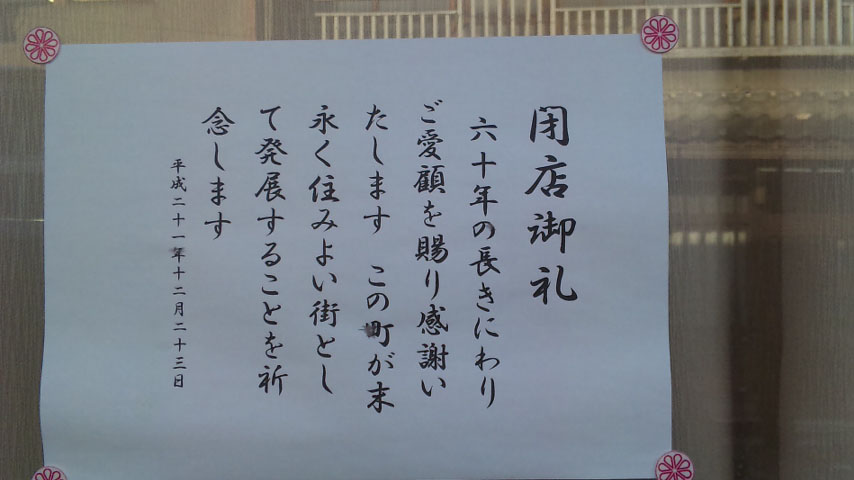 閉店御礼
六十年の長きにわり
ご愛顧を賜り感謝い
たします　この町が末
永く住みよい街とし
て発展することを祈
念します
平成二十一年十二月二十三日